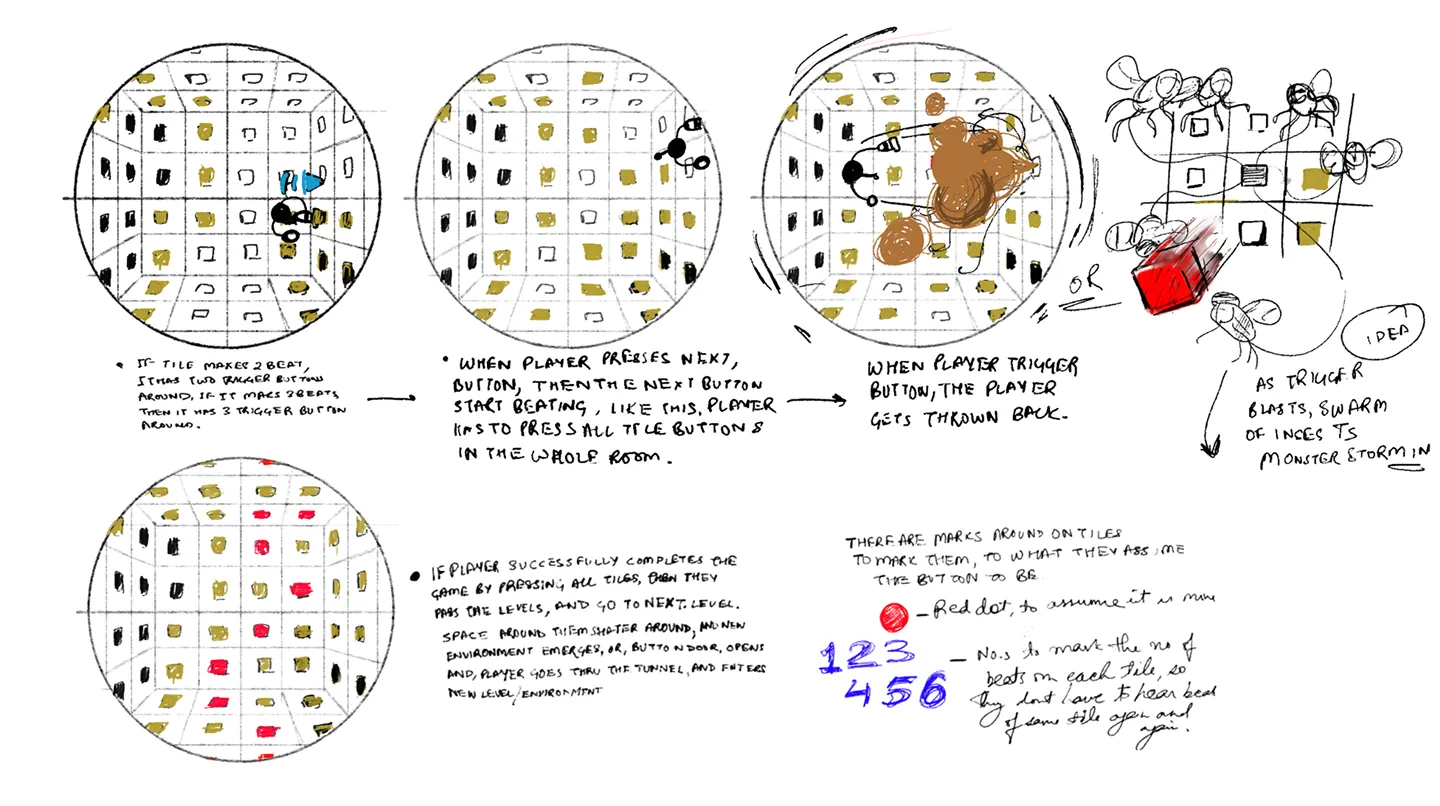 IF TILE MAKES 2 BEAT,
IT HAS TWO TRIGGER BUTTONS
AROUND, IF IT MAKES 3 BEATS,
THEN IT HAS 3 TRIGGER BUTTON
AROUND.
WHEN PLAYER PRESSES NEXT,
BUTTON, THEN THE NEXT BUTTON
START BEATING, LIKE THIS, PLAYER
HAS TO PRESS ALL TILE BUTTONS
IN THE WHOLE ROOM.
WHEN PLAYER TRIGGER
BUTTON, THE PLAYER
GETS THROWN BACK.
OR
IDEA
AS TRIGGER
BLASTS, SWARM
OF INCESTS
MONSTER STORM IN
IF PLAYER SUCCESSFULLY COMPLETES THE
GAME BY PRESSING ALL TILES, THEN THEY
PASS THE LEVELS, AND GO TO NEXT LEVEL.
SPACE AROUND THEM SHATER AROUND, AND NEW
ENVIRONMENT EMERGES, OR, BUTTON DOOR, OPENS
AND, PLAYER GOES THRU THE TUNNEL, AND ENTERS
NEW LEVEL/ENVIRONMENT
THERE ARE MARKS AROUND ON TILES
TO MARK THEM, TO WHAT THEY ASSUME
THE BUTTON TO BE
- Red dot, to assume it is mine
123
456
- No.s to mark the no of
beats on each tile, so
they dont have to hear beat
of same tile agen and
again.